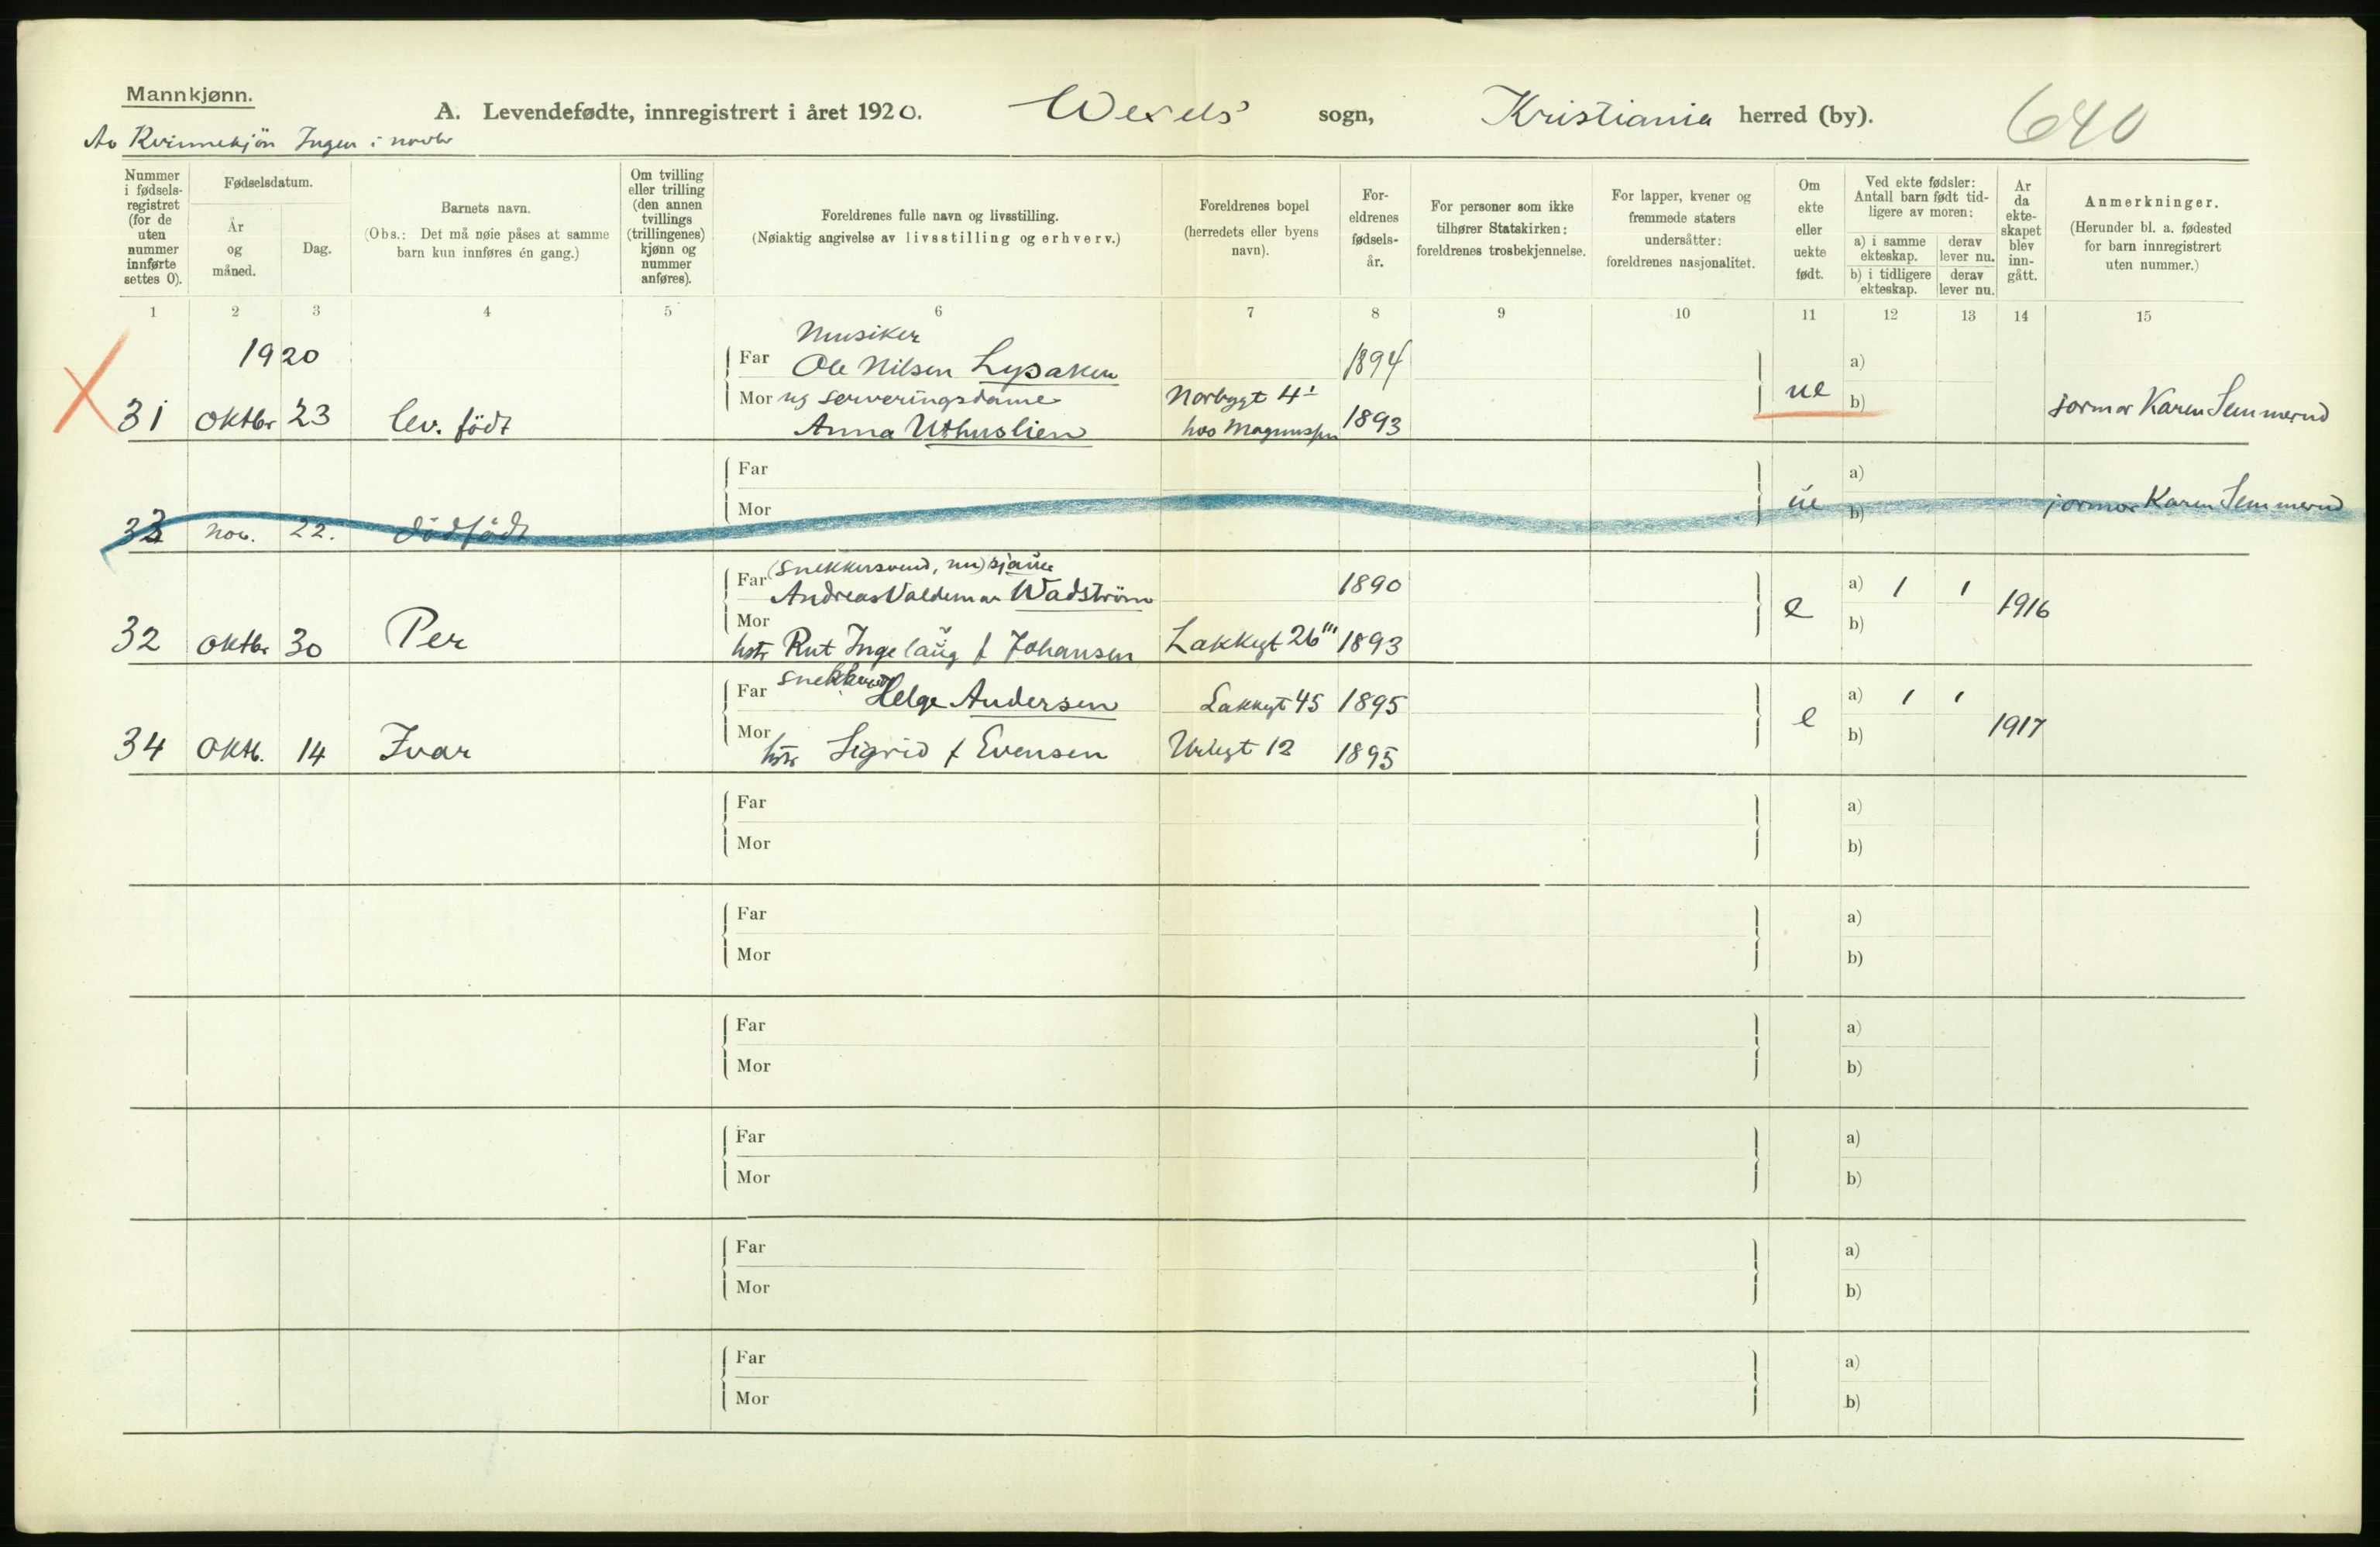 Mannkjønn.
A. Levendefødte, innregistrert i året 1920. Wexels' sogn, Kristiania herred (by). 640
Av Kvinnekjön Ingen i novbr
Nummer i fødsels-registret (for de uten nummer innførte settes 0).
Fødselsdatum.
År og måned.
Dag.
Barnets navn.
(Obs.: Det må nøie påses at samme barn kun innføres én gang.)
Om tvilling eller trilling (den annen tvillings (trillingenes) kjønn og nummer anføres).
Foreldrenes fulle navn og livsstilling.
(Nøiaktig angivelse av livsstilling og erhverv.)
Foreldrenes bopel (herredets eller byens navn).
For-eldrenes fødsels-år.
For personer som ikke tilhører Statskirken: foreldrenes trosbekjennelse.
For lapper, kvener og fremmede staters undersåtter: foreldrenes nasjonalitet.
Om ekte eller uekte født.
Ved ekte fødsler: Antall barn født tid-ligere av moren:
a) i samme ekteskap.
derav lever nu.
b) i tidligere ekteskap.
derav lever nu.
År da ekte-skapet blev inn-gått.
Anmerkninger.
(Herunder bl. a. fødested for barn innregistrert uten nummer.)
1 2 3 4 5 6 7 8 9 10 11 12 13 14 15
1920
Musiker
Far Ole Nilsen Lysaken 1894 a)
Mor ug serveringsdame Norbygt 4 ue b)
31 oktbr 23 lev. födt Anna Uthuslien hos Magnussen 1893 jormor Karen Semmerud
Far a)
Mor ue b) jormor Karen Semmerud
33 nov. 22. dödfödt
(snekkersvend, nu) sjauer
Far Andreas Valdemar Wadström 1890 a) 1 1
Mor e b) 1916
32 oktbr 30 Per hstr Rut Ingelaug f Johansen Lakkegt 26''' 1893
Far Helge Andersen Lakkegt 45 1895 a) 1 1
Mor e b) 1917
34 oktb. 14 Ivar hstr Sigrid f Evensen Urtegt 12 1895
Far a)
Mor b)
Far a)
Mor b)
Far a)
Mor b)
Far a)
Mor b)
Far a)
Mor b)
Far a)
Mor b)